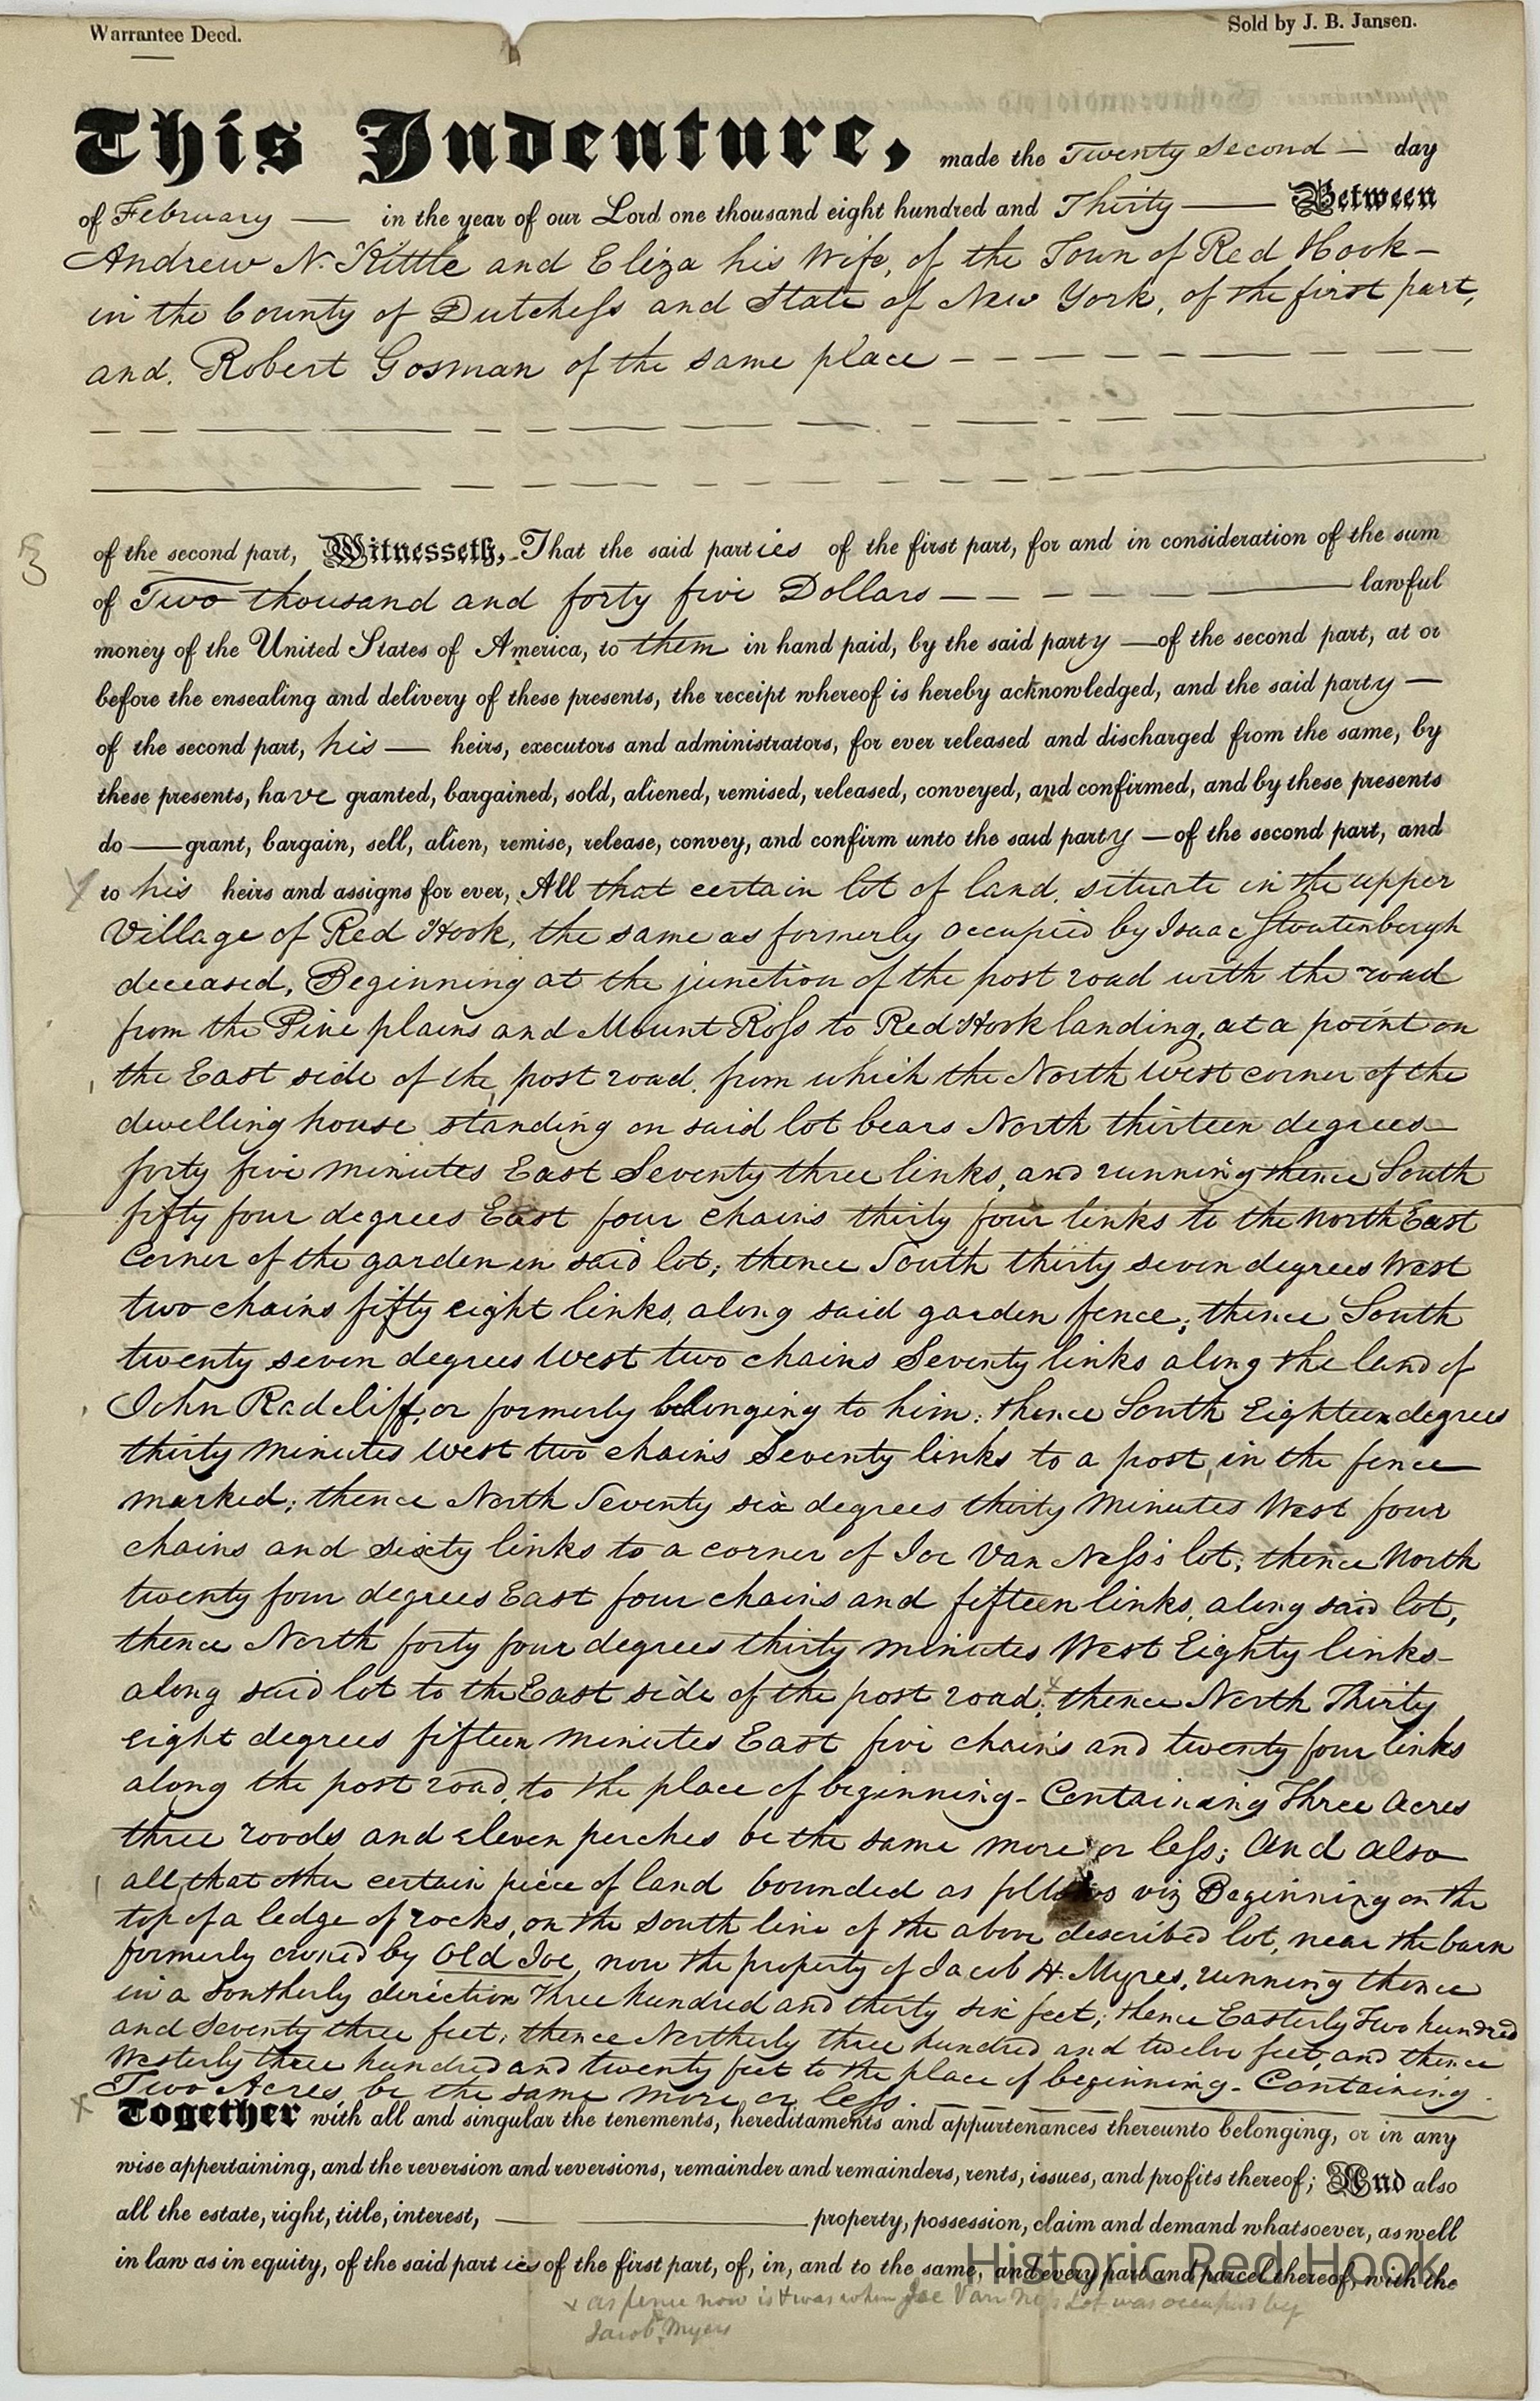 Warrantee Deed.
Sold by J. B. Jansen.
This Indenture, made the Twenty Second — day
of February — in the year of our Lord one thousand eight hundred and Thirty — Between
Andrew N. Kittle and Eliza his Wife, of the Town of Red Hook –
in the County of Dutchess and State of New York, of the first part,
and. Robert Gosman of the same place
of the second part, Witnesseth, That the said parties of the first part, for and in consideration of the sum
of Two thousand and forty five Dollars — lawful
money of the United States of America, to them in hand paid, by the said party — of the second part, at or
before the ensealing and delivery of these presents, the receipt whereof is hereby acknowledged, and the said party —
of the second part, his — heirs, executors and administrators, for ever released and discharged from the same, by
these presents, have granted, bargained, sold, aliened, remised, released, conveyed, and confirmed, and by these presents
do — grant, bargain, sell, alien, remise, release, convey, and confirm unto the said party — of the second part, and
to his heirs and assigns for ever, All that certain lot of land, situate in the upper
Village of Red Hook, the same as formerly occupied by Isaac Stoutenburgh
deceased, Beginning at the junction of the post road with the road
from the Pine plains and Mount Ross to Red Hook landing, at a point on
the East side of the post road, from which the North West corner of the
dwelling house standing on said lot bears North thirteen degrees
forty five minutes East Seventy three links, and running thence South
fifty four degrees East four chains thirty four links to the North East
Corner of the garden in said lot; thence South thirty seven degrees West
two chains fifty eight links, along said garden fence; thence South
twenty seven degrees West two chains Seventy links along the land of
John Radcliff, or formerly belonging to him; thence South Eighteen degrees
thirty minutes West two chains Seventy links to a post, in the fence
marked; thence North Seventy six degrees thirty minutes West four
chains and sixty links to a corner of Joe Van Ness's lot; thence North
twenty four degrees East four chains and fifteen links, along said lot,
thence North forty four degrees thirty minutes West Eighty links
along said lot to the East side of the post road; x thence North Thirty
eight degrees fifteen minutes East five chains and twenty four links
along the post road, to the place of beginning - Containing Three Acres
three roods and eleven perches be the same more or less; And also
all that other certain piece of land bounded as follows viz Beginning on the
top of a ledge of rocks, on the south line of the above described lot, near the barn
formerly owned by Old Joe, now the property of Jacob H. Myres, running thence
in a southerly direction Three hundred and thirty six feet; thence Easterly Two hundred
and Seventy three feet; thence Northerly three hundred and twelve feet, and thence
Westerly three hundred and twenty feet to the place of beginning - Containing
Two Acres, be the same more or less.
Together with all and singular the tenements, hereditaments and appurtenances thereunto belonging, or in any
wise appertaining, and the reversion and reversions, remainder and remainders, rents, issues, and profits thereof; And also
all the estate, right, title, interest, — property, possession, claim and demand whatsoever, as well
in law as in equity, of the said parties of the first part, of, in, and to the same, and every part and parcel thereof, with the
x as fence now is & was when Joe Van Ness Lot was occupied by
Jacob Myers
Historic Red Hook